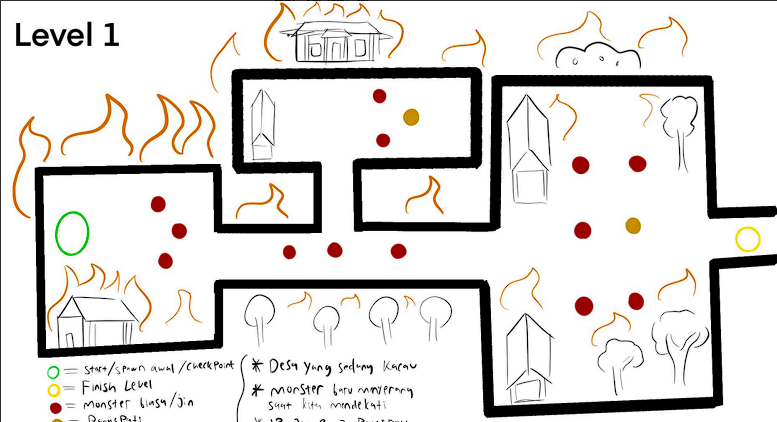 Level 1
= start/spawn awal/checkpoint
= Finish Level
= monster biasa/jin
* Desa yang sedang kacau
* monster baru menyerang
saat kita mendekati